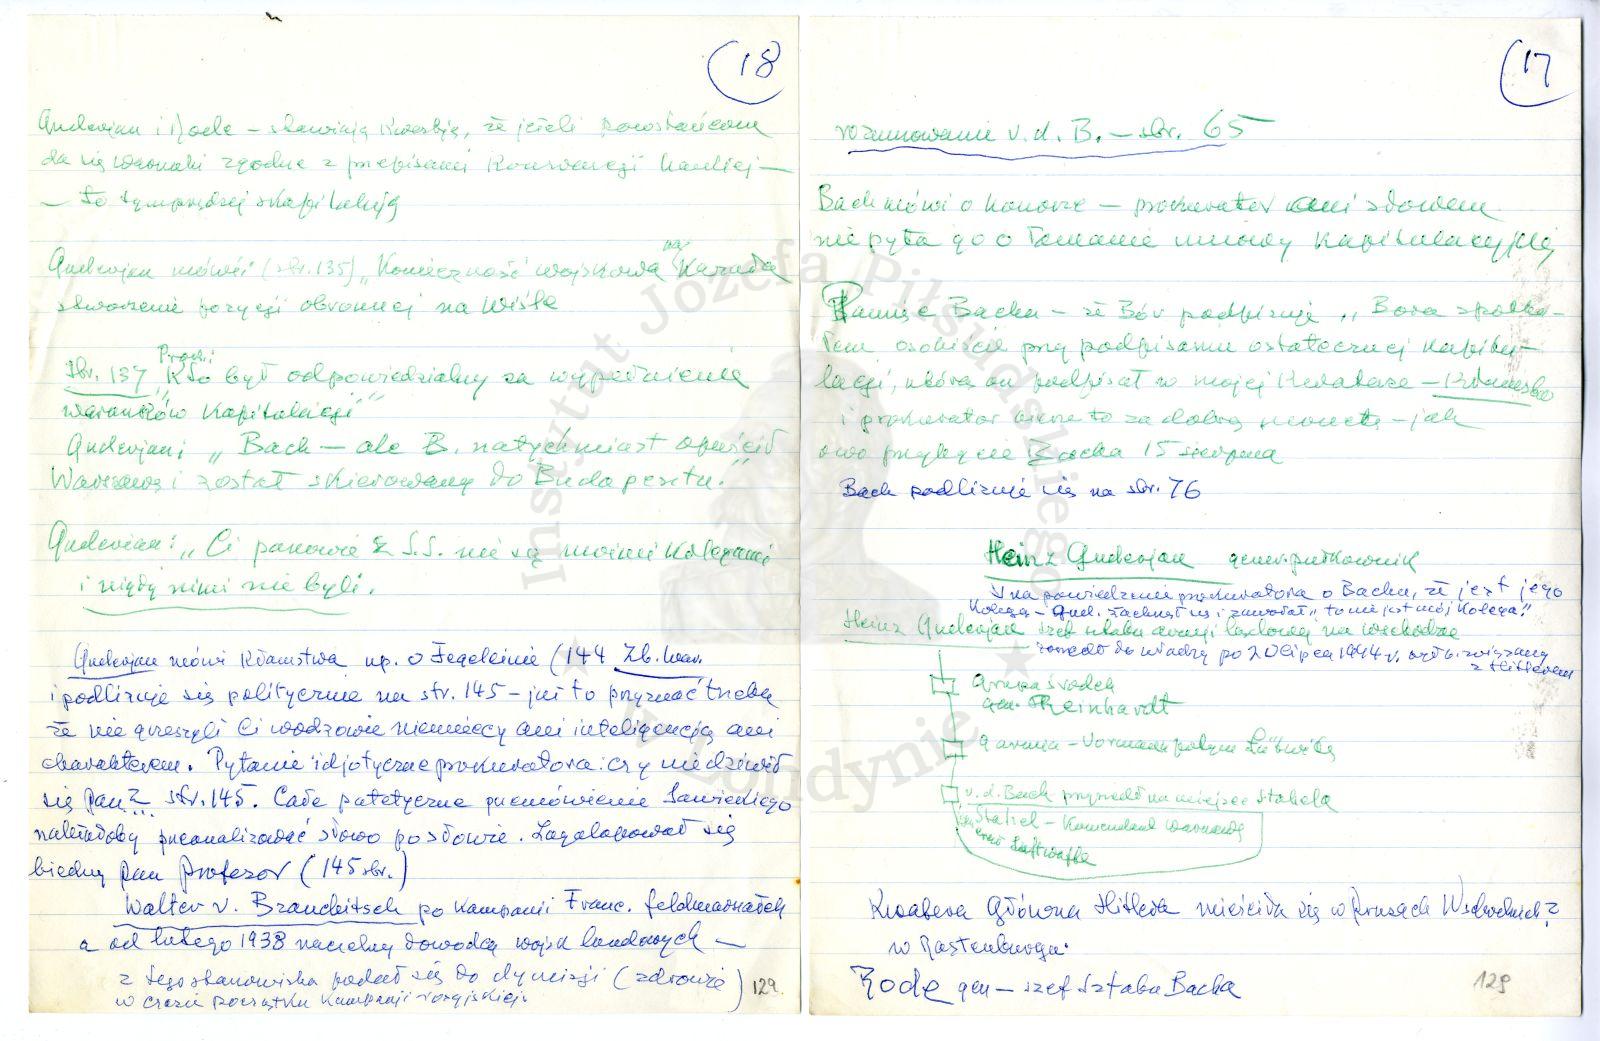 18
Guderjan i Rode – stawiają kwestję, że jeżeli powstańcom
da się warunki zgodne z przepisami Konwencji haskiej –
– to tymprędzej skapitulują
Guderjan mówi (str. 135) „Konieczność wojskowa nakazała
stworzenie pozycji obronnej na Wiśle
Prok.:
Str. 137 „Kto był odpowiedzialny za wypełnienie
warunków Kapitulacji"
Guderjan; „Bach – ale B. natychmiast opuścił
Warszawę i został skierowany do Budapesztu."
Guderian: „Ci panowie z S.S. nie są moimi Kolegami
i nigdy nimi nie byli.
Guderjan mówi kłamstwa np. o Fegeleinie (144 Zb. War.
i podlizuje się politycznie na str. 145 – już to przyznać trzeba
że nie grzeszyli Ci wodzowie niemieccy ani inteligencją ani
charakterem. Pytanie idjotyczne prokuratora: czy nie dziwił
się Pan? str. 145. Całe patetyczne przemówienie Sawickiego
należałoby przeanalizować słowo po słowie. Zagalopował się
biedny Pan Profesor (145 str.)
Walter v. Brauchitsch po Kampanii Franc. feldmarszałek
a od lutego 1938 naczelny dowódca wojsk lądowych –
z tego stanowiska podał się do dymisji (zdrowie)
w czasie początku Kampanji rosyjskiej.
129.
17
rozumowanie v. d. B. – str. 65
Bach mówi o honorze – prokurator ani słowem
nie pyta go o łamanie umowy Kapitulacyjnej
Pamięć Bacha – że Bór podpisuje „Bora spotka-
łem osobiście przy podpisaniu ostatecznej Kapitu-
lacji, którą on podpisał w mojej Kwaterze –
i prokurator bierze to za dobrą monetę – jak
owo przybycie Bacha 15 sierpnia
Bach podlizuje się na str. 76
Heinz Guderjan gener. pułkownik
Na powiedzenie prokuratora o Bachu, że jest jego
Kolegą – Gud. żachnął się i zawołał „to nie jest mój Kolega!"
Heinz Guderjan szef sztabu armji lądowej na wschodzie
doszedł do władzy po 20 lipca 1944 r. związany
z Hitlerem
Grupa środek
gen. Reinhardt
9 armia – Vormann potem Lütwitz
v. d. Bach przyszedł na miejsce Stahela
gen Stahel – Komendant Warszawy
Luftwaffe
Kwatera Główna Hitlera mieściła się w Prusach Wschodnich?
w Rastenburgu.
Rode gen – szef sztabu Bacha
129
Instytut Józefa Piłsudskiego
w Londynie